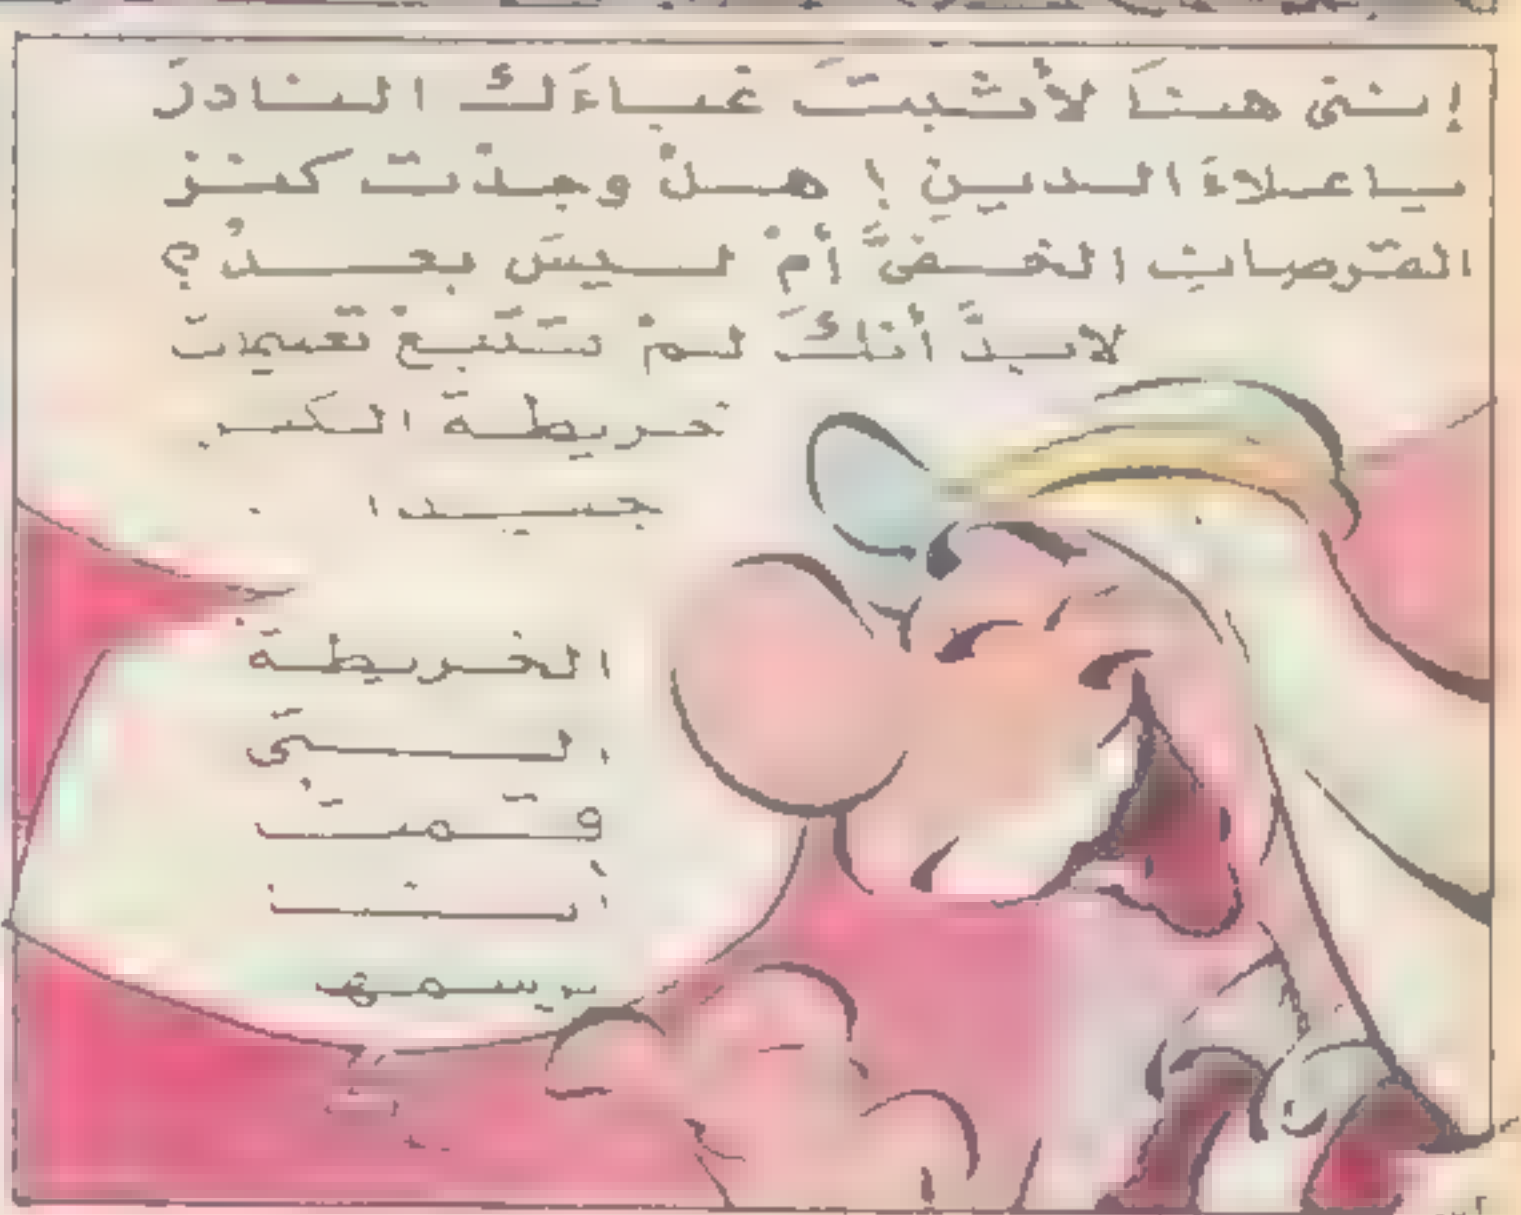 إنني هنا لأثبت غباءك النادر
يا علاء الدين ! هل وجدت كنز
القرصان الخفي أم ليس بعد ؟
لابد أنك لم تتبع تعليمات
خريطة الكنز
جيدا .
الخريطة
التي
قمت
أنا
برسمها